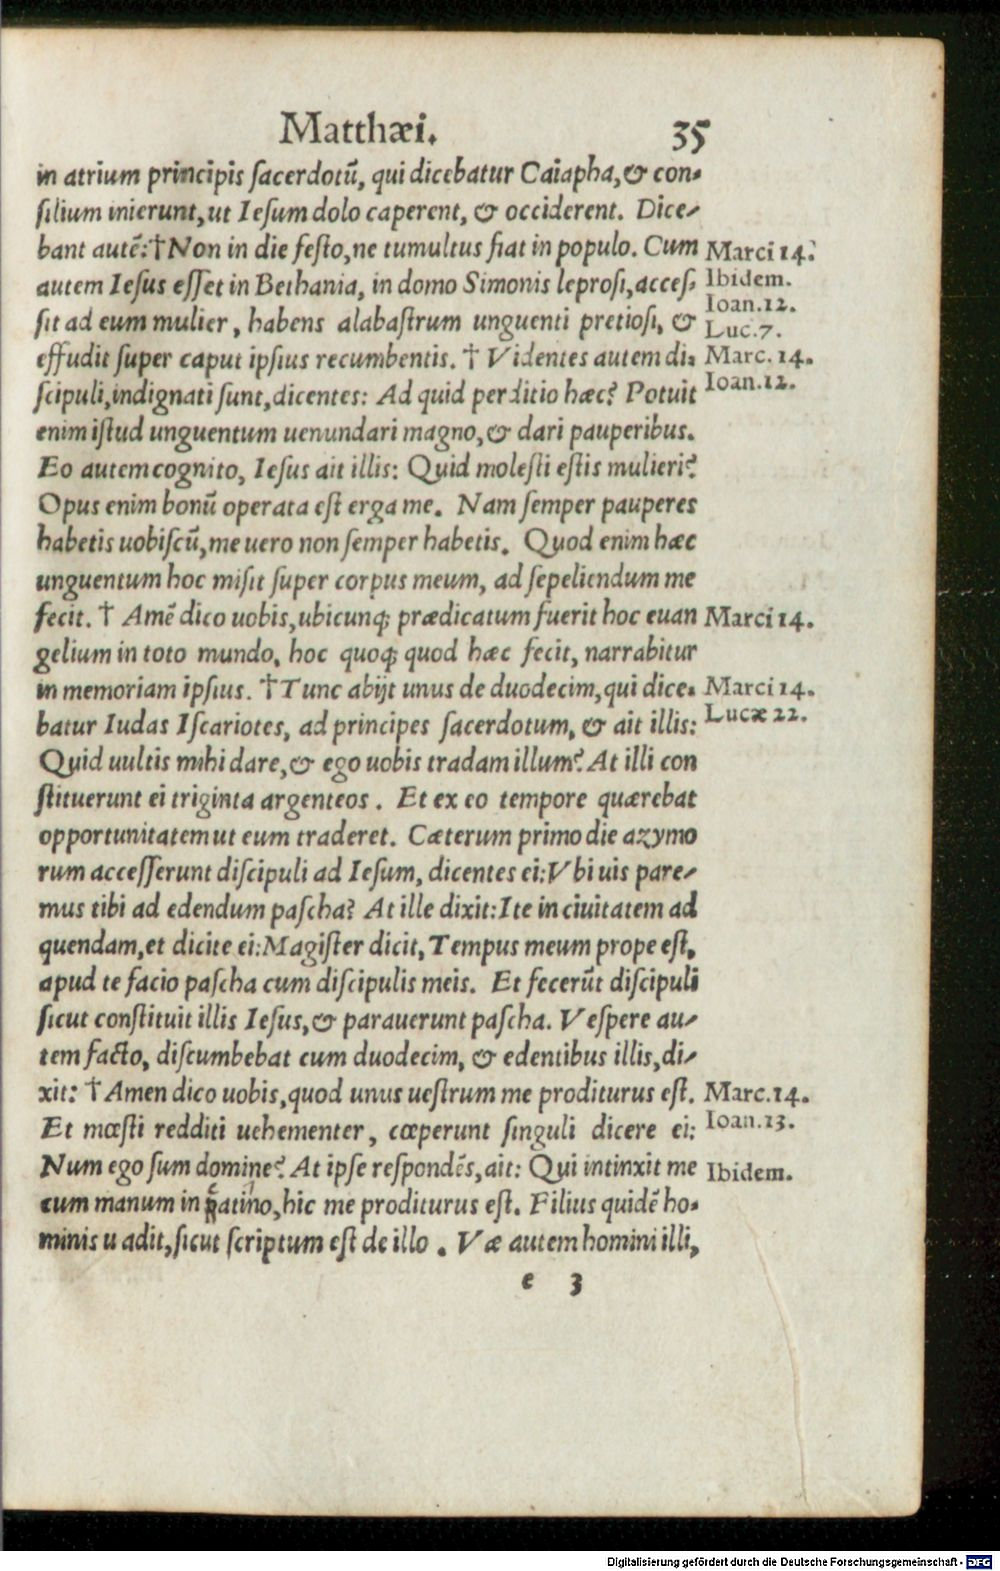 Matthæi. 35
in atrium principis sacerdotũ, qui dicebatur Caiapha, & con-
silium inierunt, ut Iesum dolo caperent, & occiderent. Dice-
bant autẽ: † Non in die festo, ne tumultus fiat in populo. Cum Marci 14.
autem Iesus esset in Bethania, in domo Simonis leprosi, acces- Ibidem.
Ioan. 12.
sit ad eum mulier, habens alabastrum unguenti pretiosi, & Luc. 7.
effudit super caput ipsius recumbentis. † Videntes autem di- Marc. 14.
scipuli, indignati sunt, dicentes: Ad quid perditio hæc? Potuit Ioan. 12.
enim istud unguentum uenundari magno, & dari pauperibus.
Eo autem cognito, Iesus ait illis: Quid molesti estis mulieri?
Opus enim bonũ operata est erga me. Nam semper pauperes
habetis uobiscũ, me uero non semper habetis. Quod enim hæc
unguentum hoc misit super corpus meum, ad sepeliendum me
fecit. † Amẽ dico uobis, ubicunq; prædicatum fuerit hoc euan Marci 14.
gelium in toto mundo, hoc quoq; quod hæc fecit, narrabitur
in memoriam ipsius. † Tunc abijt unus de duodecim, qui dice- Marci 14.
batur Iudas Iscariotes, ad principes sacerdotum, & ait illis: Lucæ 22.
Quid uultis mihi dare, & ego uobis tradam illum? At illi con
stituerunt ei triginta argenteos. Et ex eo tempore quærebat
opportunitatem ut eum traderet. Cæterum primo die azymo
rum accesserunt discipuli ad Iesum, dicentes ei: Vbi uis pare-
mus tibi ad edendum pascha? At ille dixit: Ite in ciuitatem ad
quendam, et dicite ei: Magister dicit, Tempus meum prope est,
apud te facio pascha cum discipulis meis. Et fecerũt discipuli
sicut constituit illis Iesus, & parauerunt pascha. Vespere au-
tem facto, discumbebat cum duodecim, & edentibus illis, di-
xit: † Amen dico uobis, quod unus uestrum me proditurus est. Marc. 14.
Et mœsti redditi uehementer, cœperunt singuli dicere ei: Ioan. 13.
Num ego sum domine? At ipse respondẽs, ait: Qui intinxit me Ibidem.
cum manum in patino, hic me proditurus est. Filius quidẽ ho-
minis uadit, sicut scriptum est de illo. Væ autem homini illi,
e 3
Digitalisierung gefördert durch die Deutsche Forschungsgemeinschaft - DFG